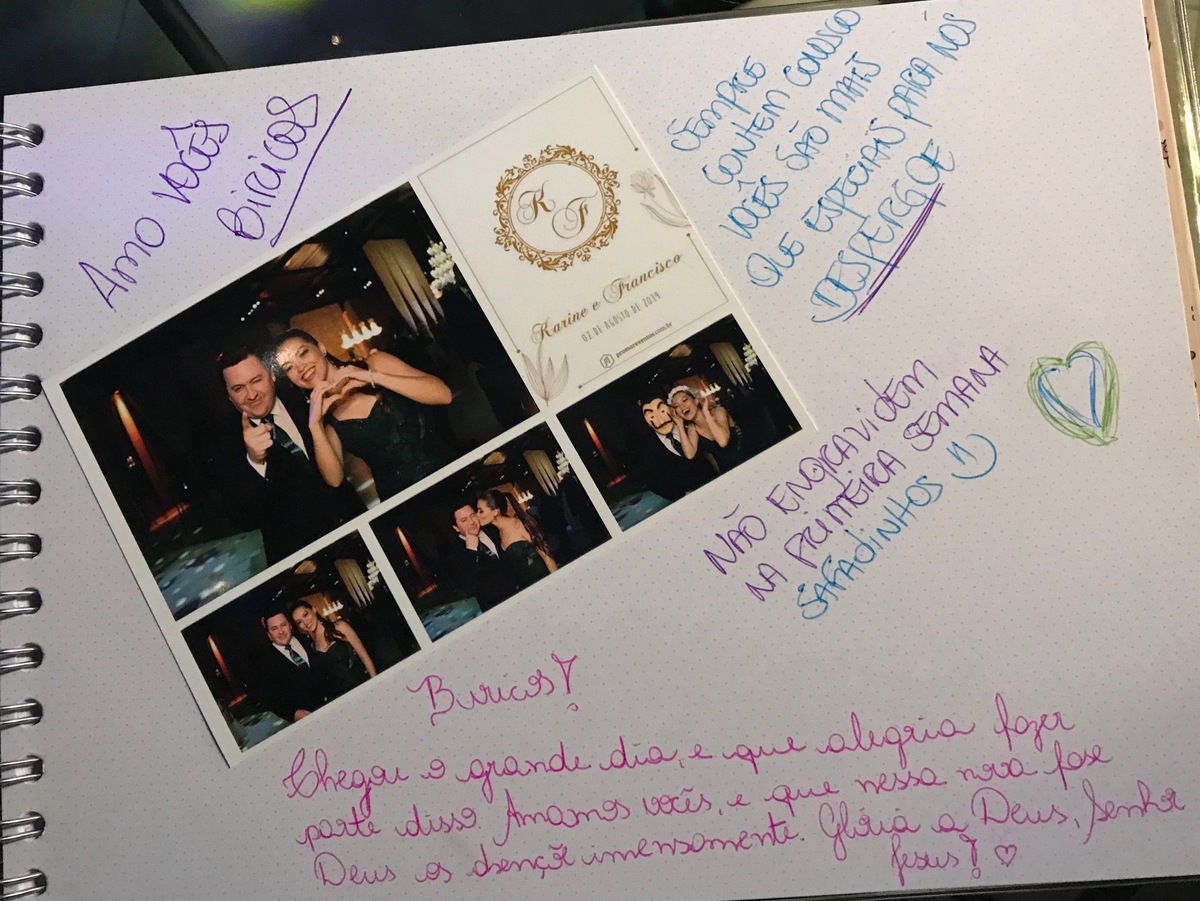 AMO VOCÊS
BIRICOS
K F
Karine e Francisco
02 DE AGOSTO DE 2019
SEMPRE
CONTEM CONOSCO
VOCÊS SÃO MAIS
QUE ESPECIAIS PARA NÓS
NÃO ENGRAVIDEM
NA PRIMEIRA SEMANA
SAFADINHOS
Buricos!
Chegou o grande dia, e que alegria fazer
parte disso. Amamos vocês, e que nessa nova fase
Deus os abençõe imensamente. Glória a Deus, Senhor
Jesus! ♡